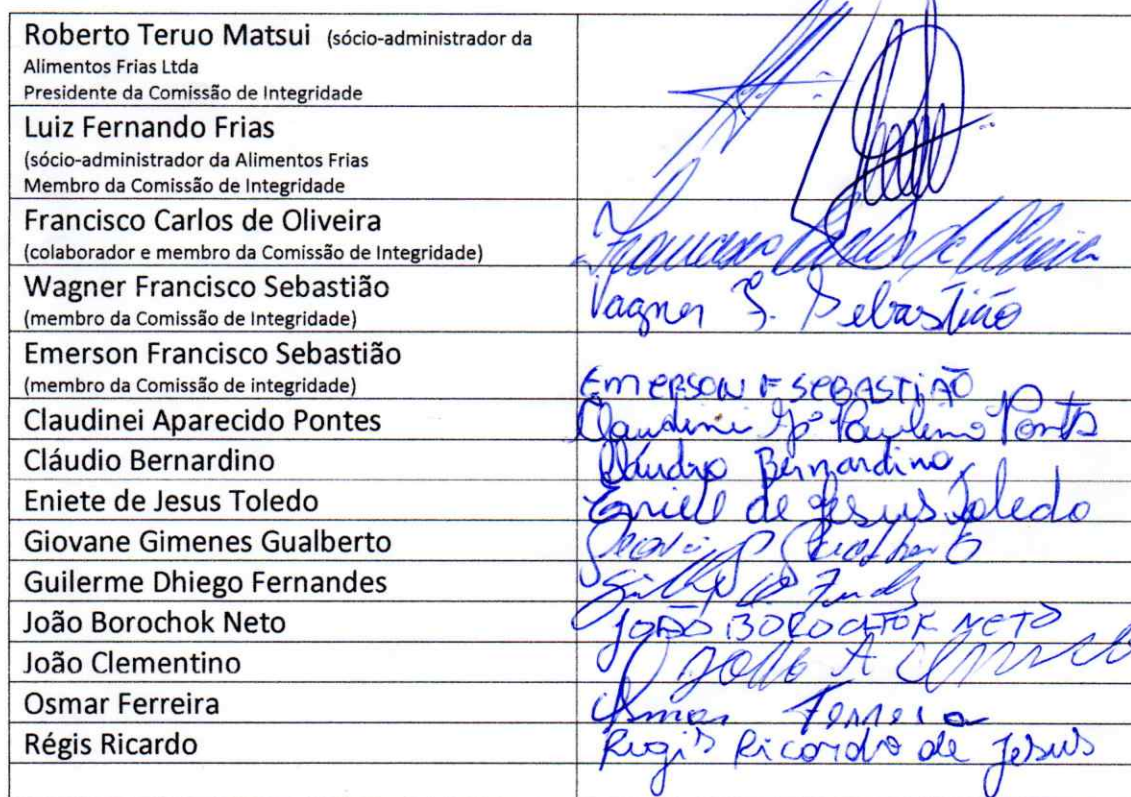 Roberto Teruo Matsui (sócio-administrador da
Alimentos Frias Ltda
Presidente da Comissão de Integridade
Luiz Fernando Frias
(sócio-administrador da Alimentos Frias
Membro da Comissão de Integridade
Francisco Carlos de Oliveira
(colaborador e membro da Comissão de Integridade)
Francisco Carlos de Oliveira
Wagner Francisco Sebastião
(membro da Comissão de Integridade)
Vagner F. Sebastião
Emerson Francisco Sebastião
(membro da Comissão de integridade)
EMERSON F SEBASTIÃO
Claudinei Aparecido Pontes
Claudinei Apº Paulino Pontes
Cláudio Bernardino
Cláudio Bernardino
Eniete de Jesus Toledo
Eniete de Jesus Toledo
Giovane Gimenes Gualberto
Gualberto
Guilerme Dhiego Fernandes
João Borochok Neto
JOÃO BOROCHOK NETO
João Clementino
João A
Osmar Ferreira
Osmar Ferreira
Régis Ricardo
Regis Ricardo de Jesus